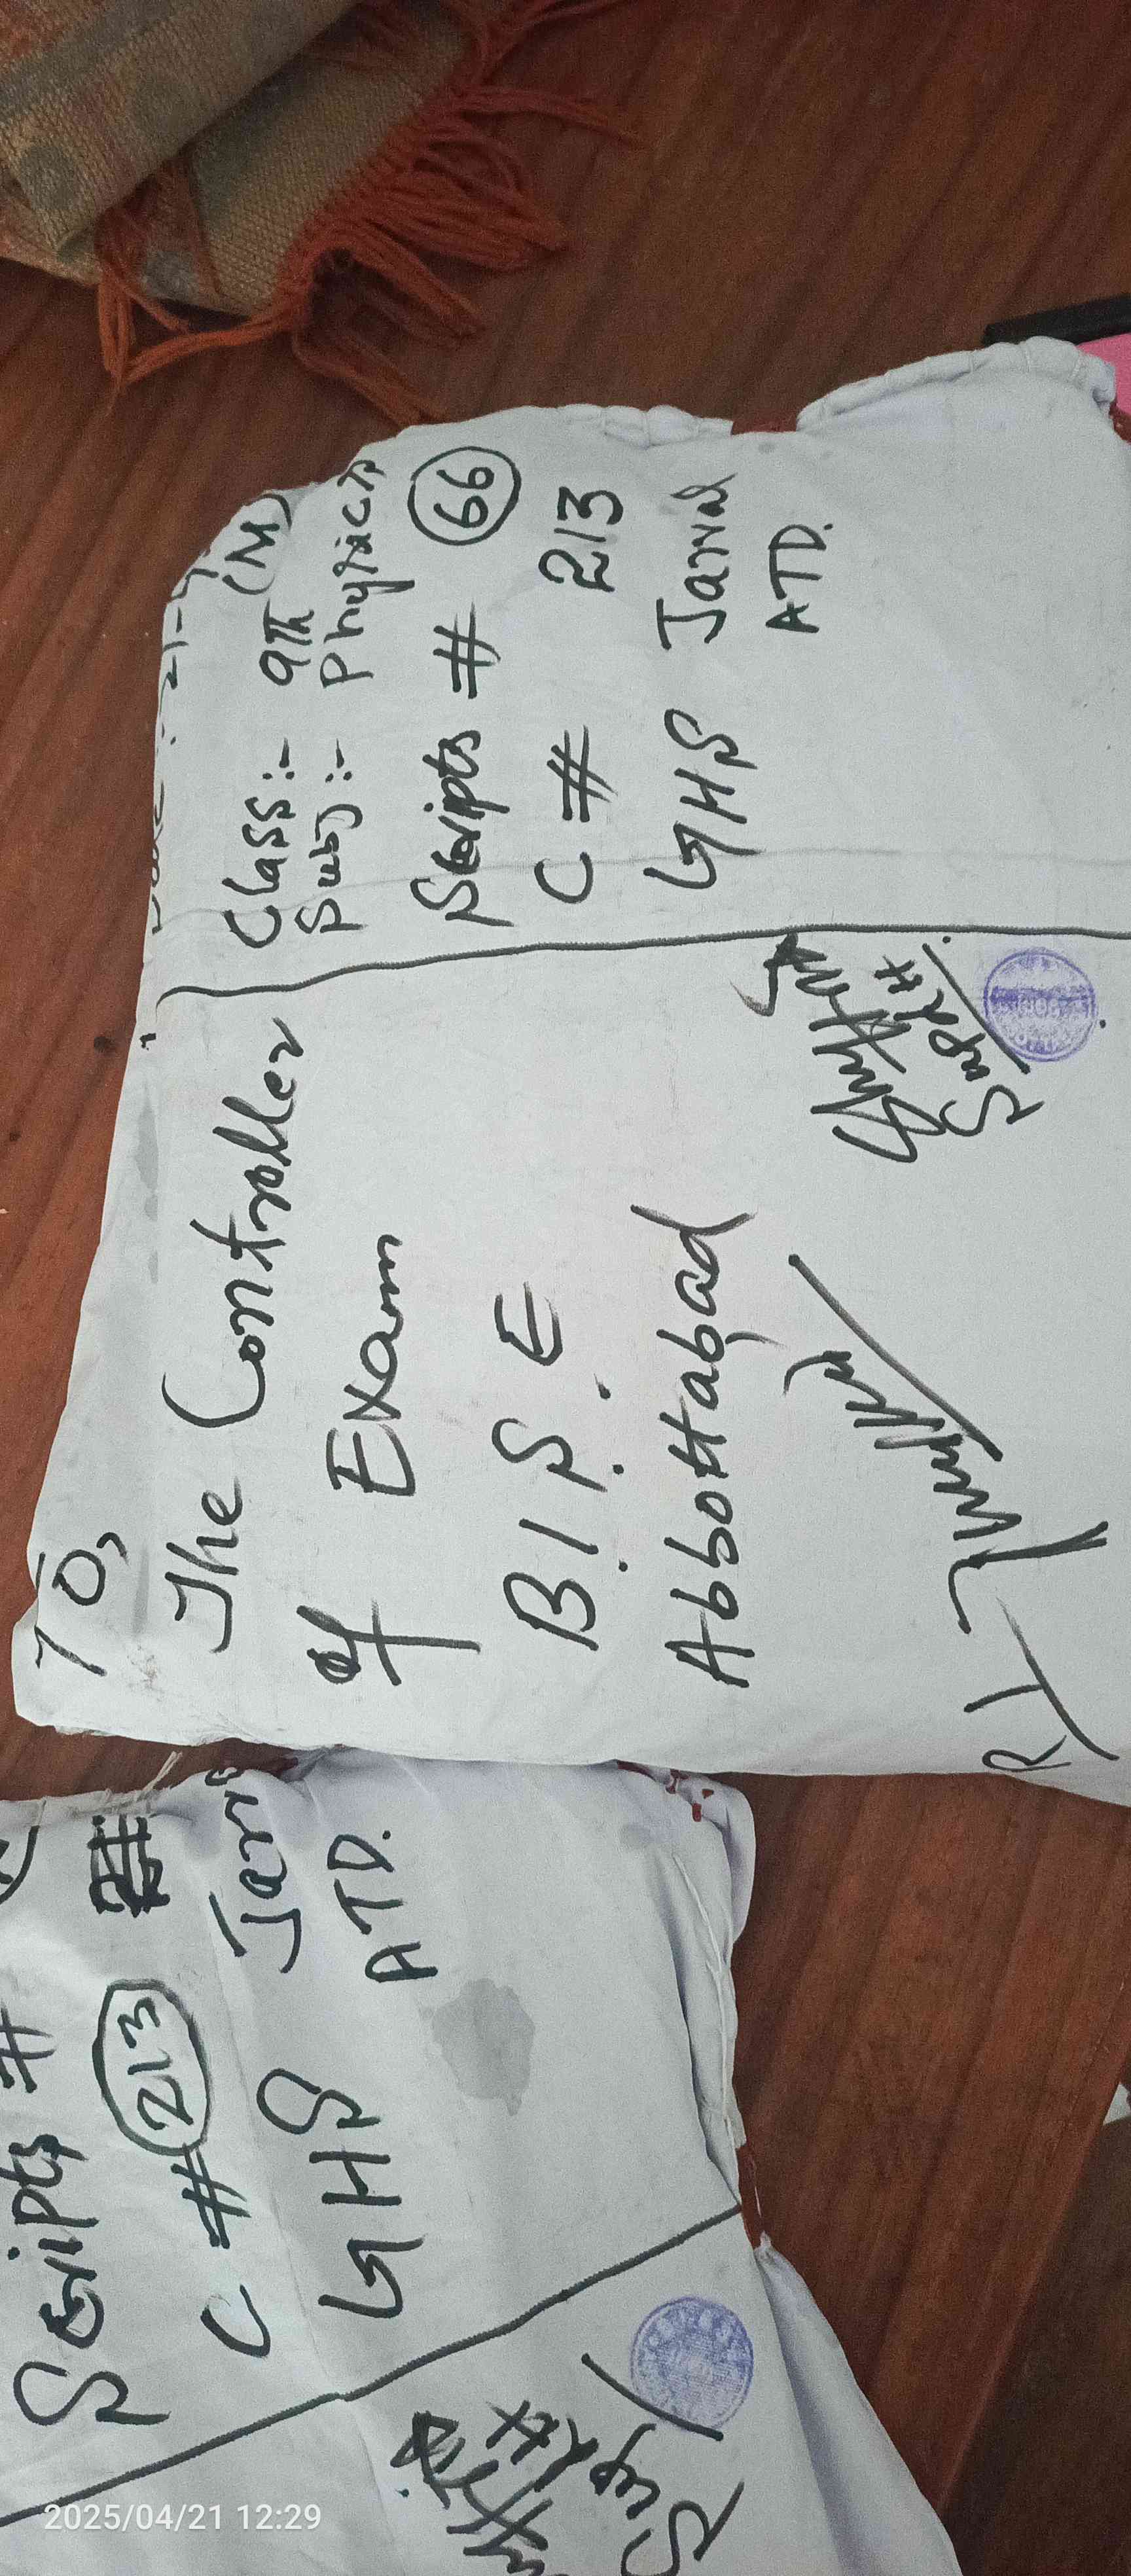 To,
The Controller
of Exam
B.I.S.E
Abbottabad
Supdtt
RI
Class:- 9th (M)
Subj:- Physics
Scripts # 66
C # 213
GHS Jarral
ATD.
Scripts #
C # 213
GHS
ATD.
Supdtt
2025/04/21 12:29